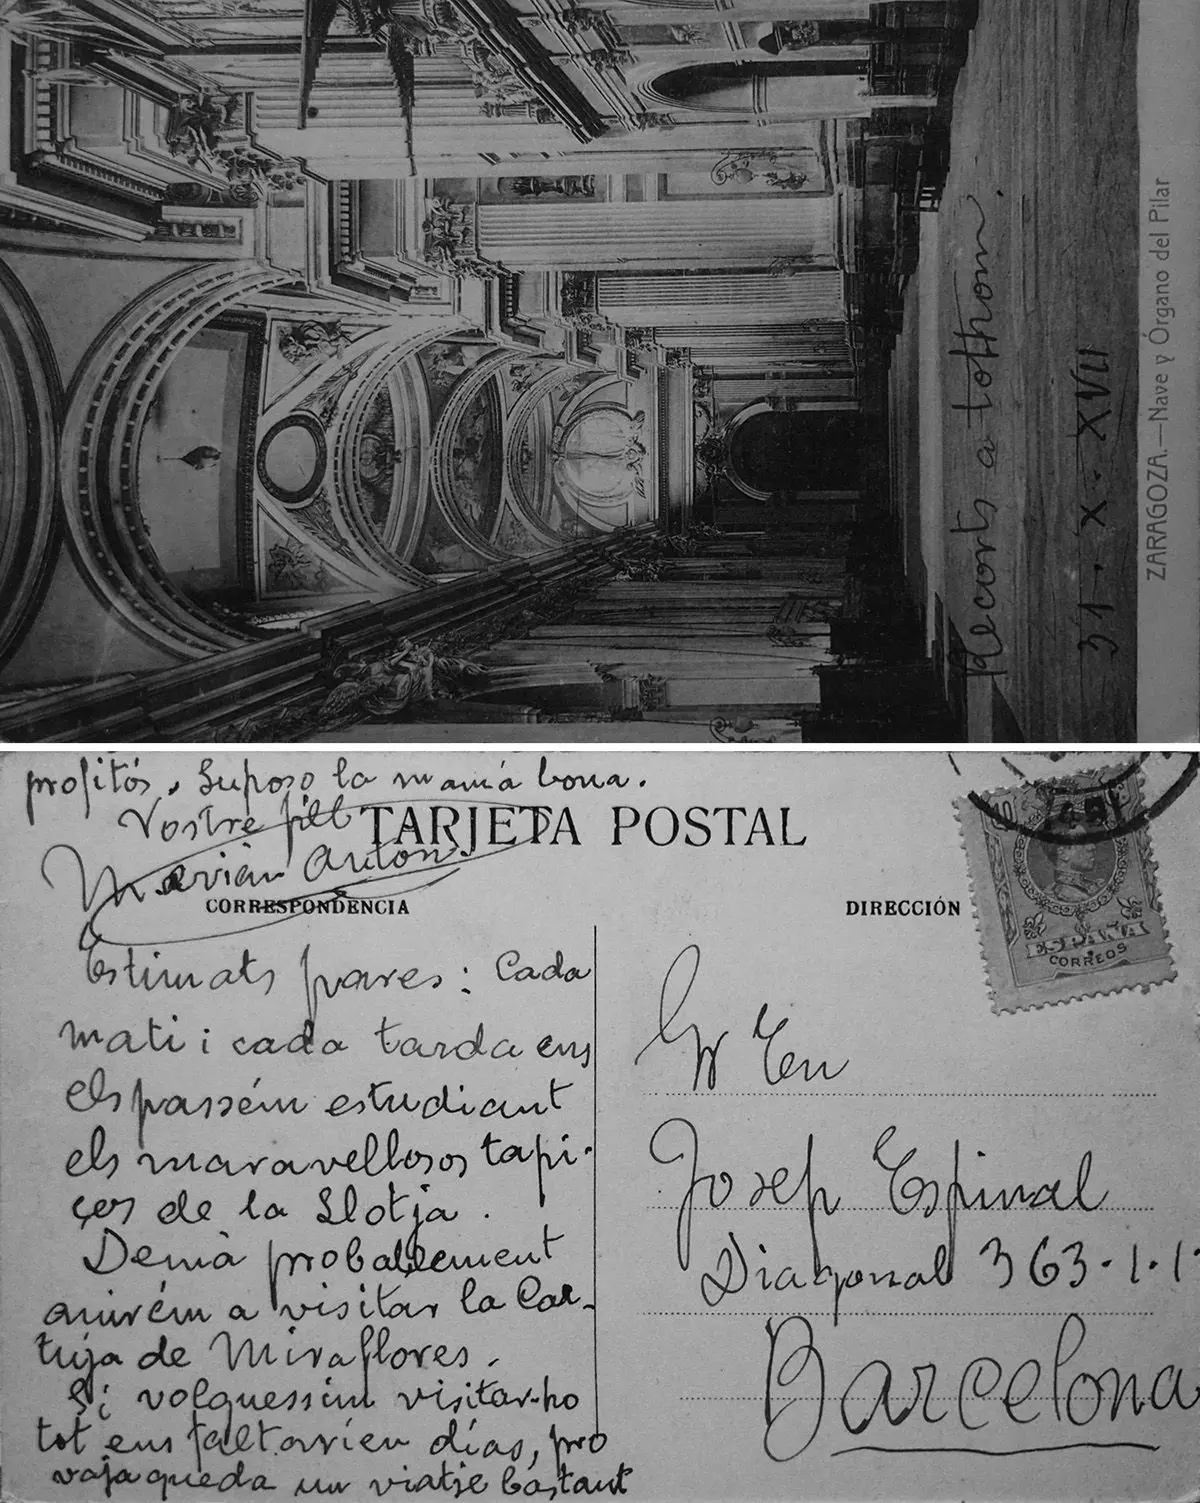 Recorts a tothom.
31 · X · XVII
ZARAGOZA.—Nave y Órgano del Pilar
profitós. Suposo la mamá bona.
Vostre fill
Marián Antón
TARJETA POSTAL
CORRESPONDENCIA
DIRECCIÓN
ESPAÑA
CORREOS
Estimats pares: Cada
mati i cada tarda ens
els passém estudiant
els maravellosos tapi-
ços de la Llotja.
Demà probablement
anirém a visitar la Car-
tuja de Miraflores.
Si volguessim visitar-ho
tot ens faltarien días, pro
vaja queda un viatje bastant
Sr En
Josep Espinal
Diagonal 363·1·1·
Barcelona